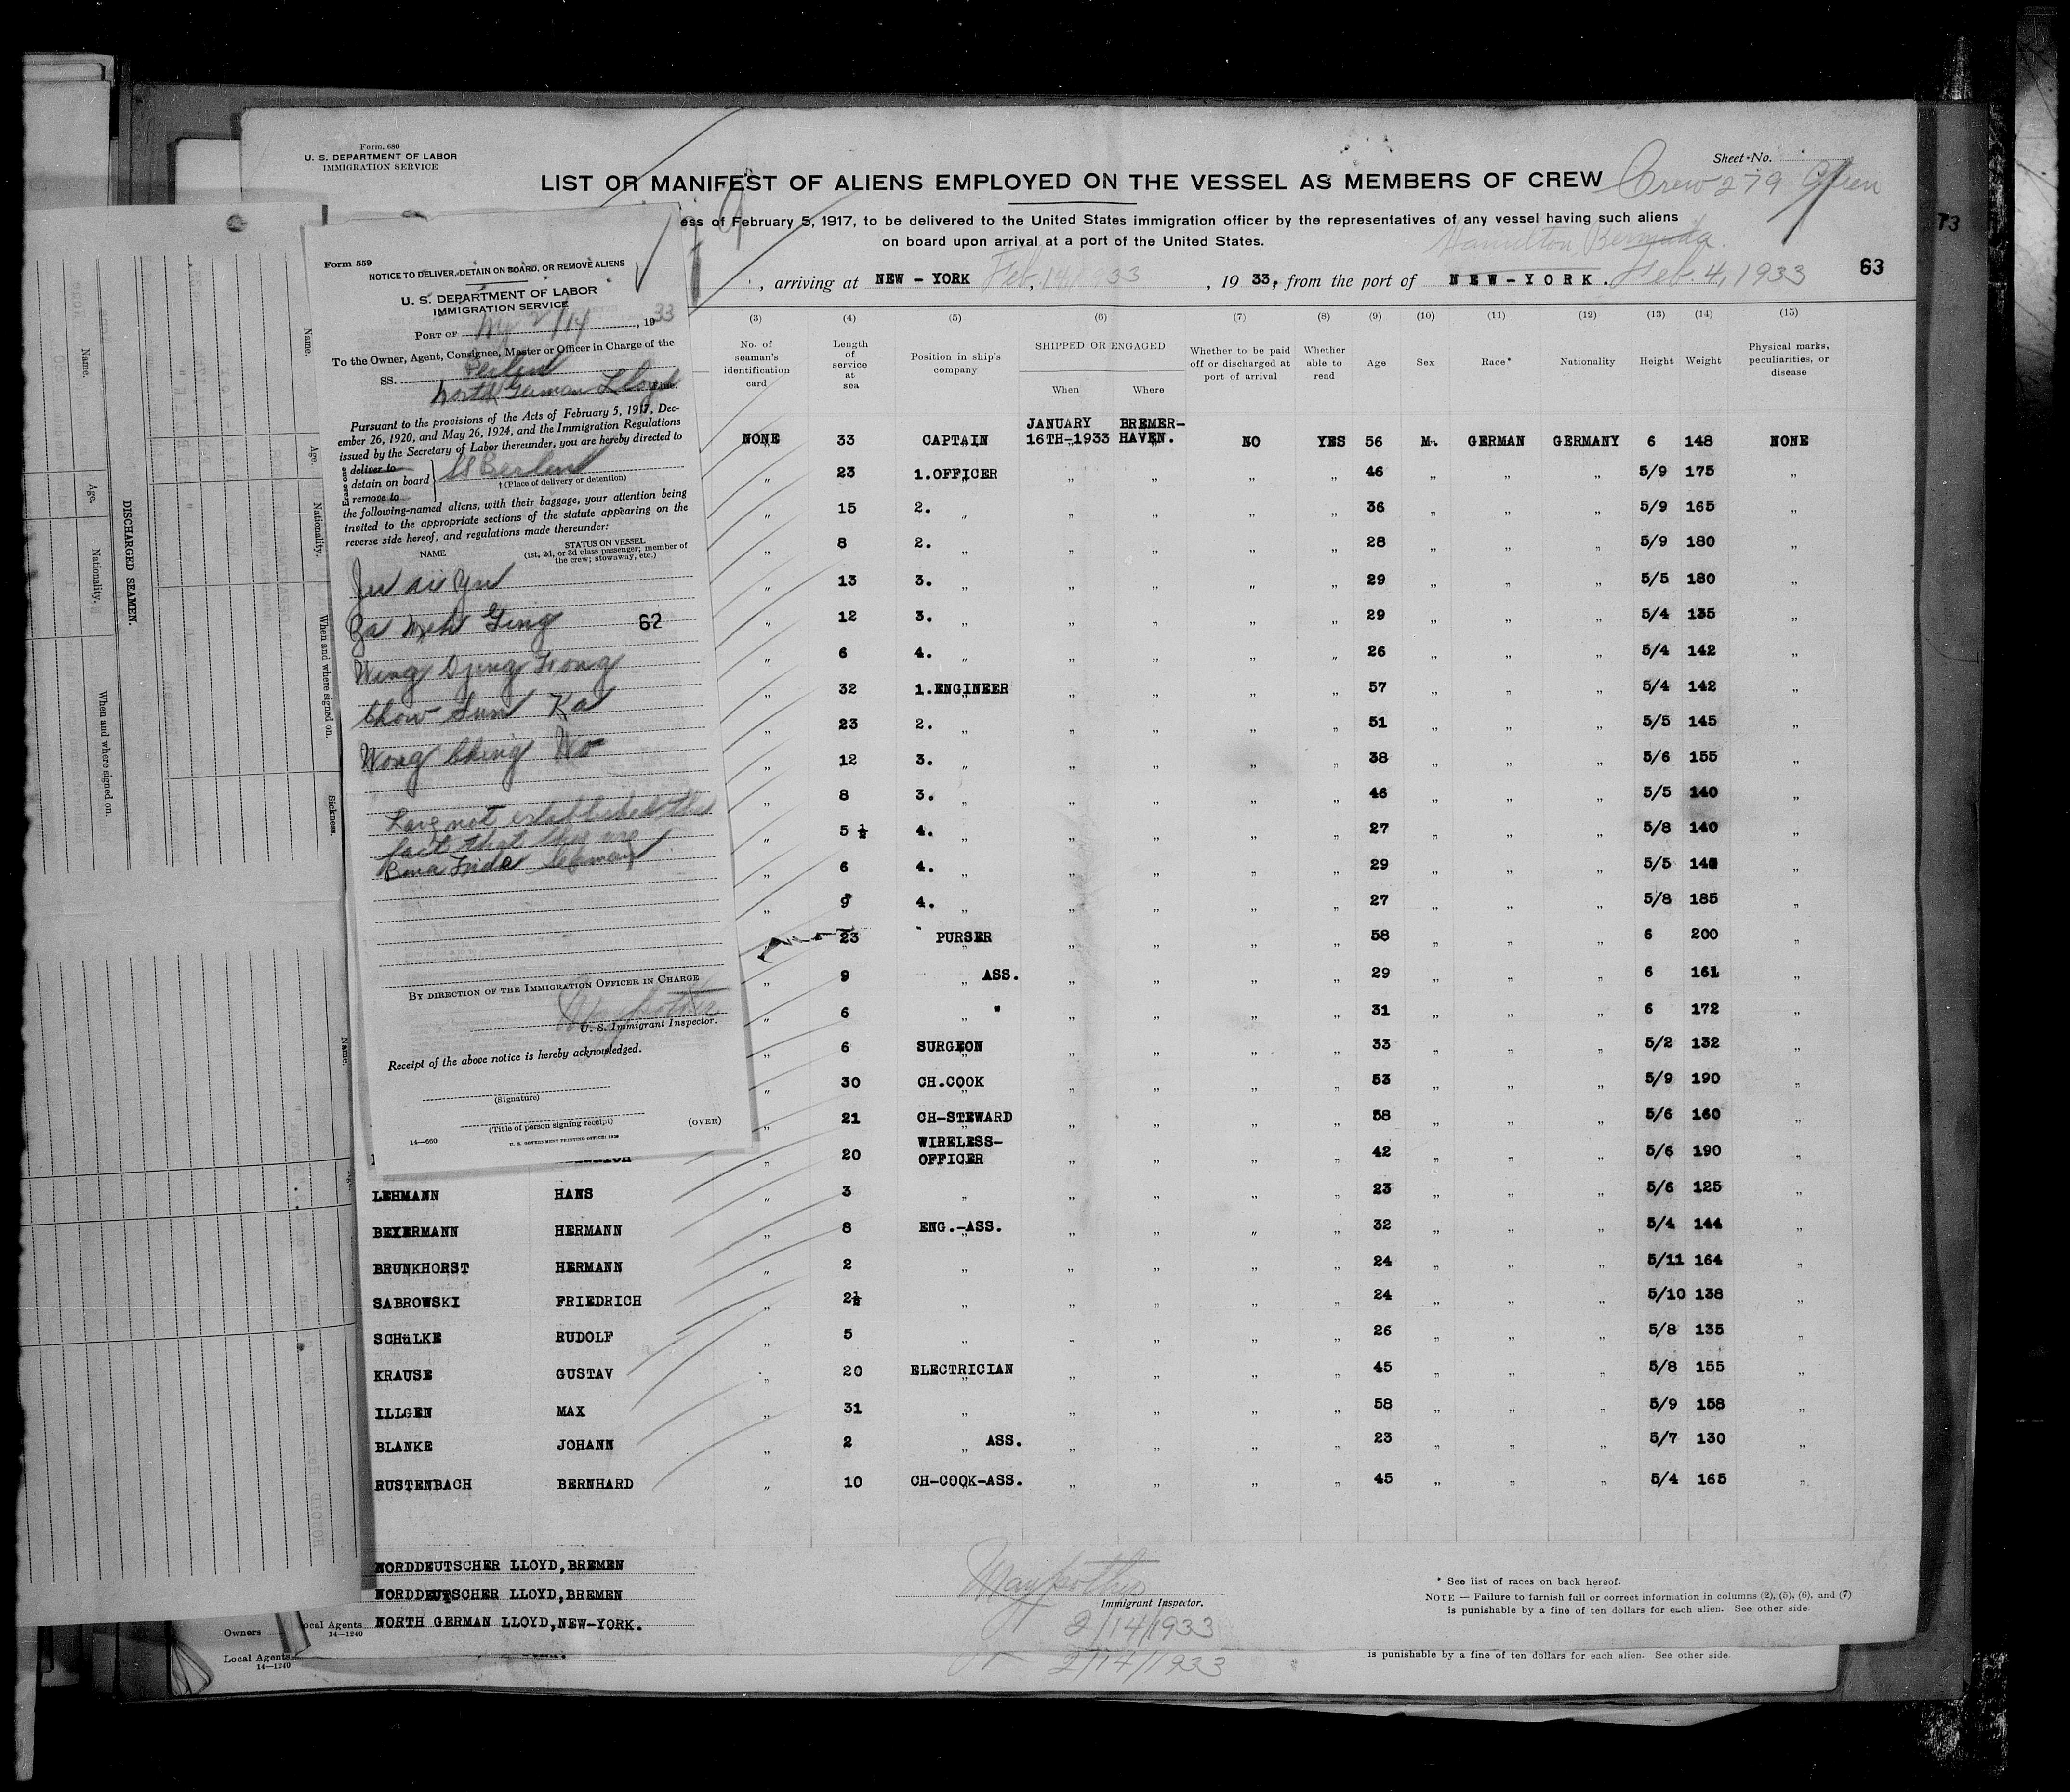 Form 680
U. S. DEPARTMENT OF LABOR
IMMIGRATION SERVICE
Sheet No.
LIST OR MANIFEST OF ALIENS EMPLOYED ON THE VESSEL AS MEMBERS OF CREW Crew 279
ess of February 5, 1917, to be delivered to the United States immigration officer by the representatives of any vessel having such aliens
on board upon arrival at a port of the United States.
Hamilton, Bermuda.
, arriving at NEW-YORK Feb. 14, 1933, 19 33, from the port of NEW-YORK. Feb. 4, 1933
63
73
Form 559
NOTICE TO DELIVER, DETAIN ON BOARD, OR REMOVE ALIENS
U. S. DEPARTMENT OF LABOR
IMMIGRATION SERVICE
PORT OF NY 2/14, 1933
To the Owner, Agent, Consignee, Master or Officer in Charge of the
SS. Berlin
North German Lloyd
Pursuant to the provisions of the Acts of February 5, 1917, Dec-
ember 26, 1920, and May 26, 1924, and the Immigration Regulations
issued by the Secretary of Labor thereunder, you are hereby directed to
Erase one
deliver to
detain on board SS Berlin
remove to
† (Place of delivery or detention)
the following-named aliens, with their baggage, your attention being
invited to the appropriate sections of the statute appearing on the
reverse side hereof, and regulations made thereunder:
NAME
STATUS ON VESSEL
(1st, 2d, or 3d class passenger; member of
the crew; stowaway, etc.)
62
Chow Sun Ka
Wong Ching Wo
not established the
fact that they are
Bona Fide Seaman
BY DIRECTION OF THE IMMIGRATION OFFICER IN CHARGE
U. S. Immigrant Inspector.
Receipt of the above notice is hereby acknowledged.
(Signature)
(Title of person signing receipt)
(OVER)
14—660
U. S. GOVERNMENT PRINTING OFFICE
(3) (4) (5) (6) (7) (8) (9) (10) (11) (12) (13) (14) (15)
No. of seaman's identification card
Length of service at sea
Position in ship's company
SHIPPED OR ENGAGED
When
Where
Whether to be paid off or discharged at port of arrival
Whether able to read
Age
Sex
Race*
Nationality
Height
Weight
Physical marks, peculiarities, or disease
NONE 33 CAPTAIN JANUARY 16TH-1933 BREMER-HAVEN. NO YES 56 M. GERMAN GERMANY 6 148 NONE
„ 23 1.OFFICER „ „ „ „ 46 „ „ „ 5/9 175 „
„ 15 2. „ „ „ „ „ 36 „ „ „ 5/9 165 „
„ 8 2. „ „ „ „ „ 28 „ „ „ 5/9 180 „
„ 13 3. „ „ „ „ „ 29 „ „ „ 5/5 180 „
„ 12 3. „ „ „ „ „ 29 „ „ „ 5/4 135 „
„ 6 4. „ „ „ „ „ 26 „ „ „ 5/4 142 „
„ 32 1.ENGINEER „ „ „ „ 57 „ „ „ 5/4 142 „
„ 23 2. „ „ „ „ 51 „ „ „ 5/5 145 „
„ 12 3. „ „ „ „ „ 38 „ „ „ 5/6 155 „
„ 8 3. „ „ „ „ „ 46 „ „ „ 5/5 140 „
„ 5 ½ 4. „ „ „ „ „ 27 „ „ „ 5/8 140 „
„ 6 4. „ „ „ „ „ 29 „ „ „ 5/5 140 „
„ 9 4. „ „ „ „ „ 27 „ „ „ 5/8 185 „
23 PURSER „ „ „ „ 58 „ „ „ 6 200 „
„ 9 „ ASS. „ „ „ „ 29 „ „ „ 6 161 „
„ 6 „ " „ „ „ „ 31 „ „ „ 6 172 „
„ 6 SURGEON „ „ „ „ 33 „ „ „ 5/2 132 „
„ 30 CH.COOK „ „ „ „ 53 „ „ „ 5/9 190 „
„ 21 CH-STEWARD „ „ „ „ 58 „ „ „ 5/6 160 „
„ 20 WIRELESS-OFFICER „ „ „ „ 42 „ „ „ 5/6 190 „
LEHMANN HANS „ 3 „ „ „ „ „ 23 „ „ „ 5/6 125 „
BEXERMANN HERMANN „ 8 ENG.-ASS. „ „ „ „ 32 „ „ „ 5/4 144 „
BRUNKHORST HERMANN „ 2 „ „ „ „ „ 24 „ „ „ 5/11 164 „
SABROWSKI FRIEDRICH „ 2½ „ „ „ „ „ 24 „ „ „ 5/10 138 „
SCHüLKE RUDOLF „ 5 „ „ „ „ „ 26 „ „ „ 5/8 135 „
KRAUSE GUSTAV „ 20 ELECTRICIAN „ „ „ „ 45 „ „ „ 5/8 155 „
ILLGEN MAX „ 31 „ „ „ „ „ 58 „ „ „ 5/9 158 „
BLANKE JOHANN „ 2 „ ASS. „ „ „ „ 23 „ „ „ 5/7 130 „
RUSTENBACH BERNHARD „ 10 CH-COOK-ASS. „ „ „ „ 45 „ „ „ 5/4 165 „
NORDDEUTSCHER LLOYD,BREMEN
NORDDEUTSCHER LLOYD,BREMEN
ocal Agents NORTH GERMAN LLOYD,NEW-YORK.
14—1240
Immigrant Inspector.
2/14/1933
* See list of races on back hereof.
NOTE — Failure to furnish full or correct information in columns (2), (5), (6), and (7)
is punishable by a fine of ten dollars for each alien. See other side.
Owners
Local Agents
14—1240
2/14/1933
is punishable by a fine of ten dollars for each alien. See other side.
DISCHARGED SEAMEN.
Name.
Age.
Nationality.
When and where signed on.
Name.
Age.
Nationality.
When and where signed on.
Sickness.
Name.